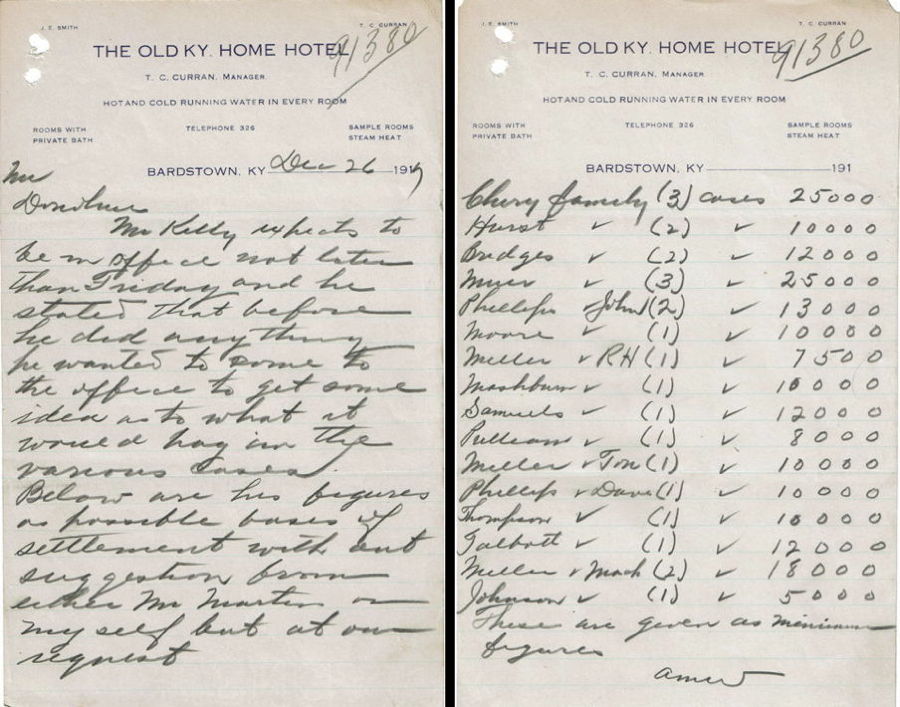 J. E. SMITH
T. C. CURRAN
THE OLD KY. HOME HOTEL
91380
T. C. CURRAN, MANAGER
HOT AND COLD RUNNING WATER IN EVERY ROOM
ROOMS WITH
PRIVATE BATH
TELEPHONE 326
SAMPLE ROOMS
STEAM HEAT
BARDSTOWN, KY Dec 26 1917
Mr
Donohue
Mr Kelly expects to
be in office not later
than Friday and he
stated that before
he did anything
he wanted to come to
the office to get some
idea as to what it
would pay in the
various cases.
Below are his figures
as possible bases of
settlement with out
suggestion from
either Mr Martin or
my self but at our
request
J. E. SMITH
T. C. CURRAN
THE OLD KY. HOME HOTEL
91380
T. C. CURRAN, MANAGER
HOT AND COLD RUNNING WATER IN EVERY ROOM
ROOMS WITH
PRIVATE BATH
TELEPHONE 326
SAMPLE ROOMS
STEAM HEAT
BARDSTOWN, KY 191
family (3) cases 25000
Hurst ✓ (2) ✓ 10000
Bridges ✓ (2) ✓ 12000
Muir ✓ (3) ✓ 25000
Phillips John (2) ✓ 13000
Moore ✓ (1) ✓ 10000
Miller ✓ RH (1) ✓ 7500
Mashburn ✓ (1) ✓ 10000
Samuels ✓ (1) ✓ 12000
Pulliam ✓ (1) ✓ 8000
Miller ✓ Tom (1) ✓ 10000
Phillips ✓ Dave (1) ✓ 10000
Thompson ✓ (1) ✓ 10000
Talbott ✓ (1) ✓ 12000
Miller ✓ Mack (2) ✓ 18000
Johnson ✓ (1) ✓ 5000
These are given as minimum
figures